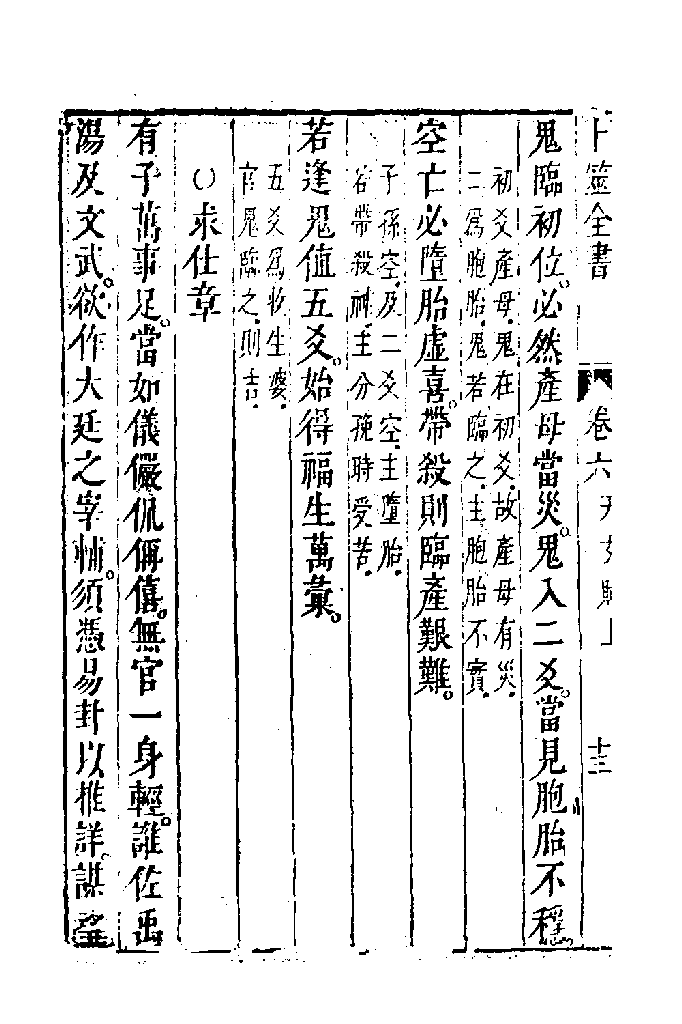 卜筮全書 卷六 天玄賦上 十三
鬼臨初位。必然產母當災。鬼入二爻。當見胞胎不穩。
初爻產母。鬼在初爻。故產母有災。
二爲胞胎。鬼若臨之。主胞胎不實。
空亡必墮胎虛喜。帶殺則臨產艱難。
子孫空。及二爻空。主墮胎。
若帶殺神。主分挽時受苦。
若逢鬼值五爻。始得福生萬彙。
五爻爲收生婆。
官鬼臨之。則吉。
○求仕章
有子萬事足。當如儀儼侃偁僖。無官一身輕。誰佐禹
湯及文武。欲作大廷之宰輔。須憑易卦以推詳。謀望